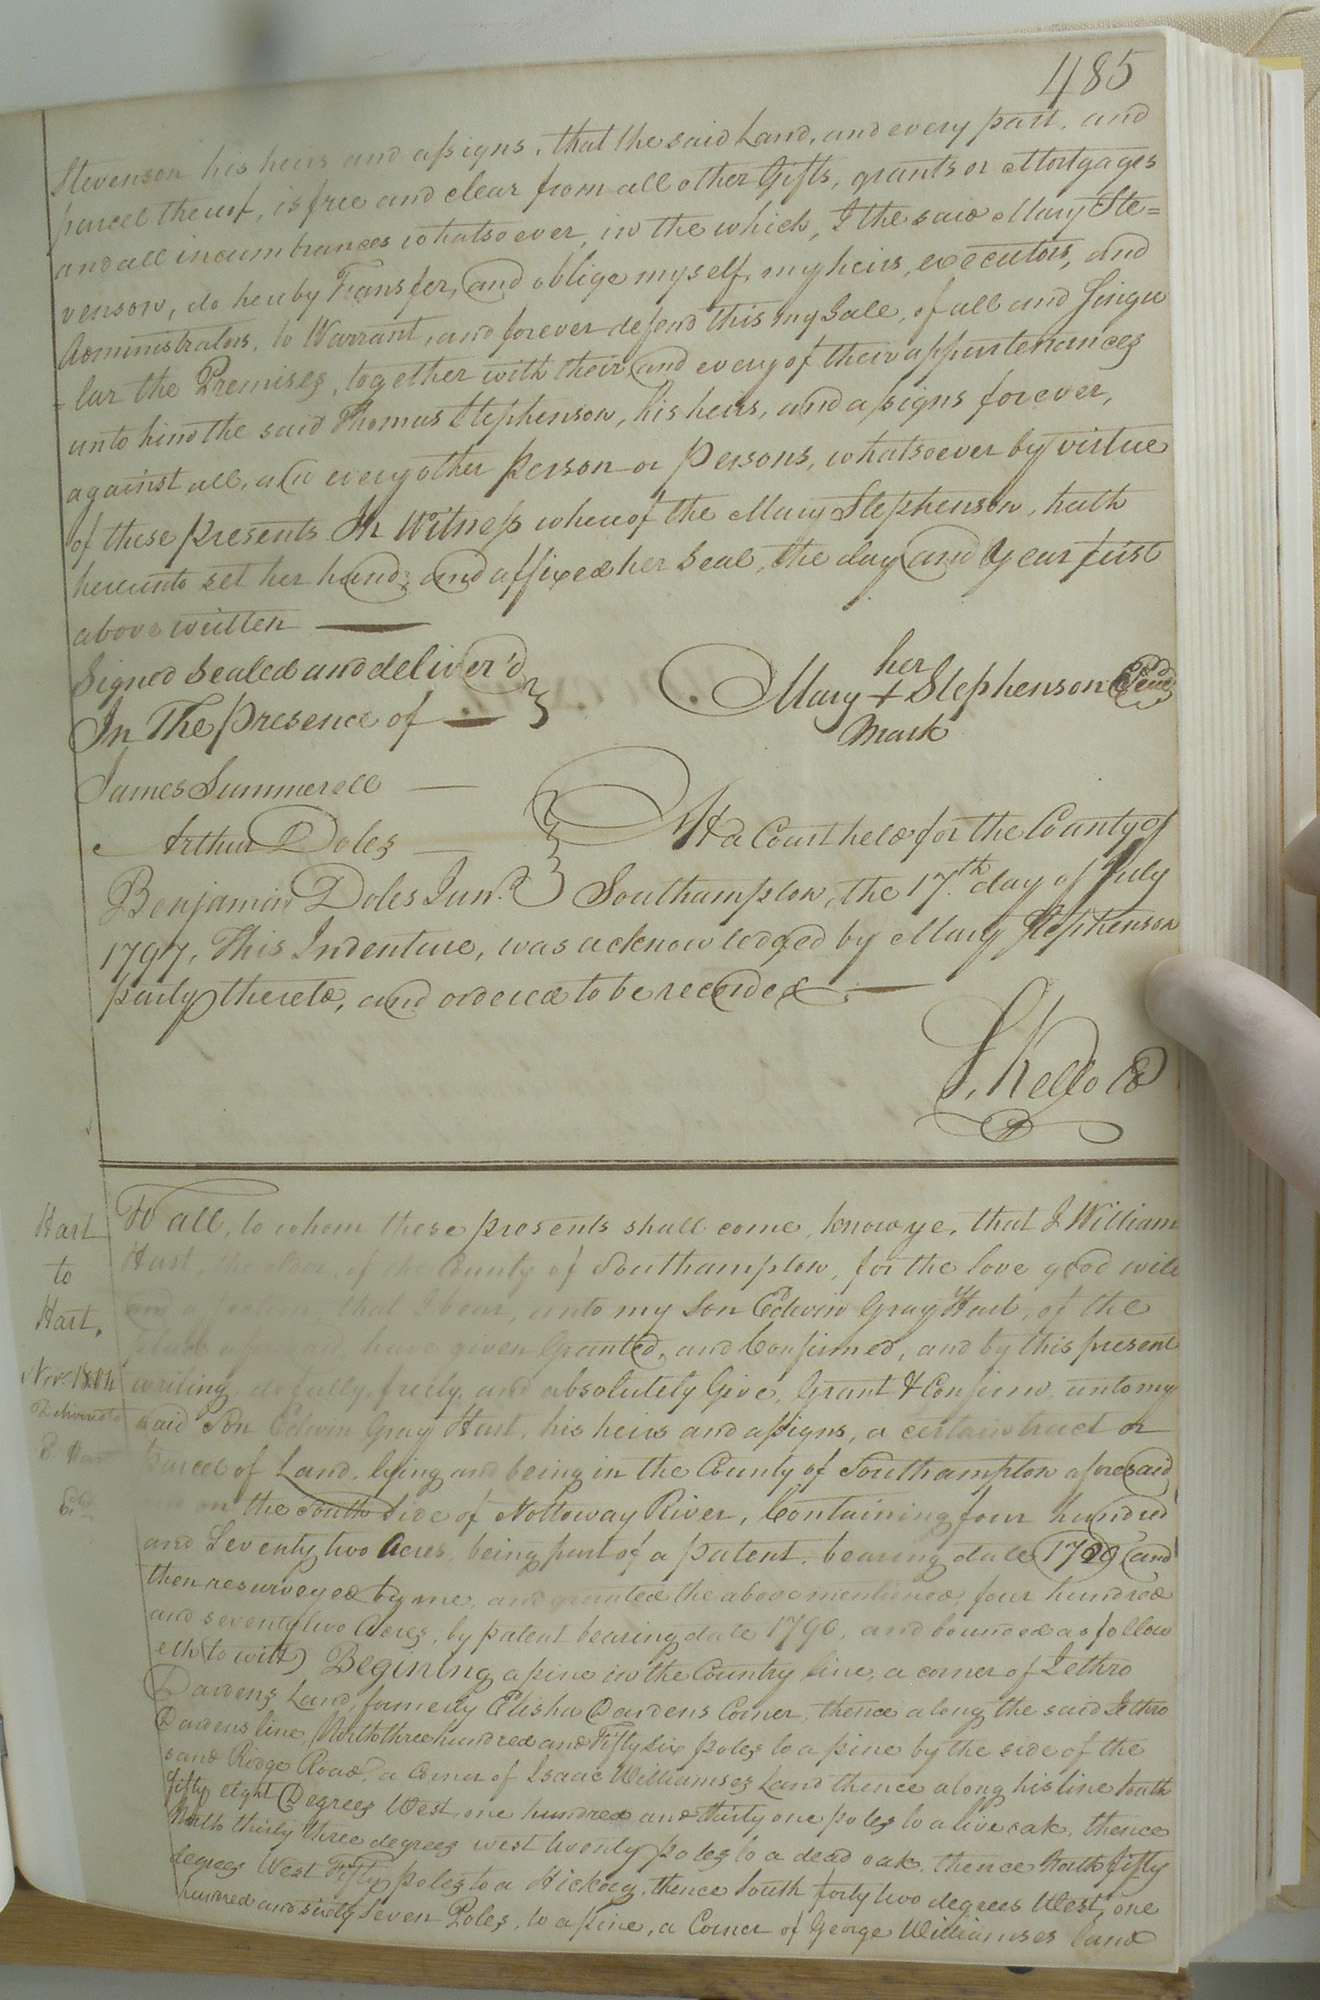 485
Stevenson his heirs and assigns, that the said Land, and every part, and
parcel thereof, is free and clear from all other Gifts, grants or Mortgages
and all incumbrances whatsoever, in the which, I the said Mary Ste=
venson, do hereby Transfer, and oblige myself, my heirs, executors, and
Administrators, to Warrant, and forever defend this my Sale, of all and Singu
=lar the Premises, together with their and every of their appurtenances
unto him the said Thomas Stephenson, his heirs, and assigns forever,
against all, and every other person or persons, whatsoever by virtue
of these presents In Witness whereof the Mary Stephenson, hath
hereunto set her hand, and affixed her Seal, the day and Year first
above written
Signed Sealed and deliver'd
In The presence of
her
Mary + Stephenson Seal
mark
James Summerell
Arthur Doles
Benjamin Doles Junr.
At a Court held for the County of
Southampton, the 17.th day of July
1797, This Indenture, was acknowledged by Mary Stephenson
party thereto, and ordered to be recorded
S. Kello CC
Hart
to
Hart.
Novr. 1804
Delivered to
E. Hart
To all, to whom these presents shall come, know ye, that I William
Hart, the elder, of the County of Southampton, for the love good will
and affection that I bear, unto my Son Edwin Gray Hart, of the
State aforesaid have given Granted, and Confirmed, and by this present
writing, do fully, freely, and absolutely Give, Grant & Confirm, unto my
said Son Edwin Gray Hart, his heirs and assigns, a certain tract or
parcel of Land, lying and being in the County of Southampton aforesaid
on the South Side of Nottoway River, Containing four hundred
and Seventy two Acres, being part of a patent, bearing date and
then resurveyed by me, and granted the above mentioned, four hundred
and seventy two Acres, by patent bearing date 1790, and bounded as follow
eth (to witt) Begining a pine in the Country line, a corner of Jethro
Dardens Land, formerly Elisha Dardens Corner, thence along the said Jethro
Dardens line, North three hundred and Fifty Six poles to a pine by the side of the
sand Ridge Road, a Corner of Isaac Williamses Land thence along his line South
fifty eight Degrees West, one hundred and thirty one poles to a live oak, thence
North thirty three degrees west twenty poles to a dead oak, thence North fifty
degrees West Fifty poles to a Hickory, thence South forty two degrees West, one
hundred and sixty Seven Poles, to a pine, a Corner of George Williamses land